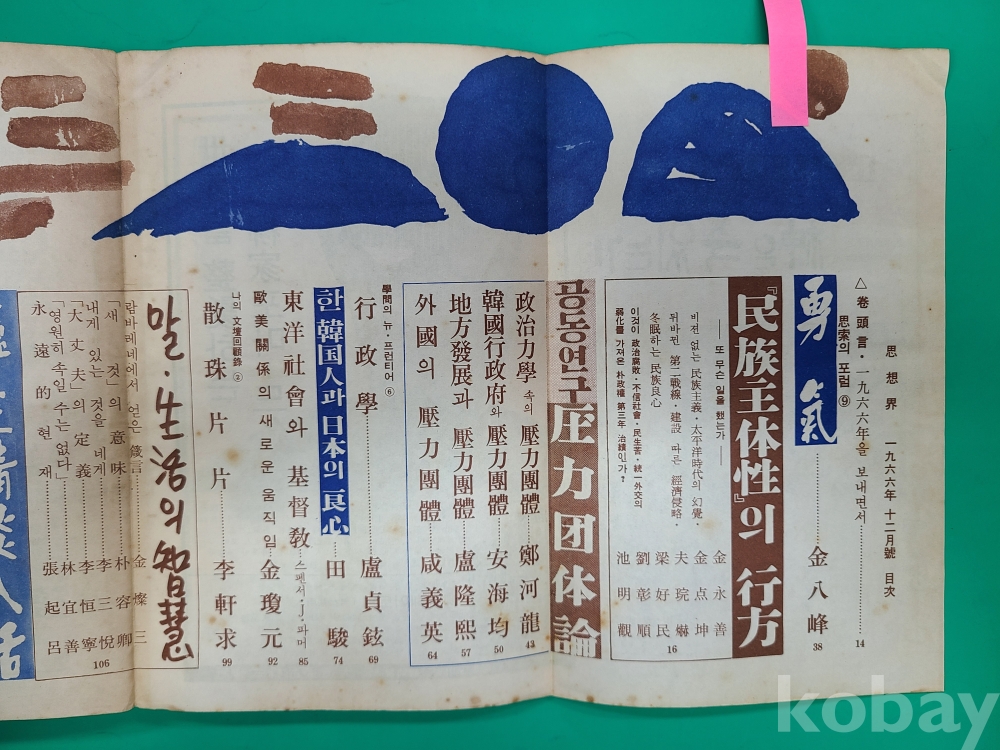 思想界 一九六六年 十二月號 目次
△卷頭言·一九六六年을 보내면서 14
思索의 포럼 ⑨
勇氣 金八峰 38
『民族主体性』의 行方
—— 또 무슨 일을 했는가 ——
비전 없는 民族主義·太平洋時代의 幻覺·
뒤바뀐 第二戰線·建設 따른 經濟侵略·
冬眠하는 民族良心
이것이 政治腐敗·不信社會·民生苦·統一外交의
弱化를 가져온 朴政權 第三年 治績인가?
金永善
金点坤
夫琓爀
梁好民
劉彰順
池明觀
16
공동연구 圧力団体論
政治力學 속의 壓力團體 鄭河龍 43
韓國行政府와 壓力團體 安海均 50
地方發展과 壓力團體 盧隆熙 57
外國의 壓力團體 咸義英 64
學問의 뉴·프런티어 ⑥
行政學 盧貞鉉 69
한 韓国人과 日本의 良心 田駿 74
東洋社會와 基督敎 스펜서·j·파머 85
歐美關係의 새로운 움직임 金瓊元 92
나의 文壇回顧錄 ②
散珠片片 李軒求 99
말·生活의 智慧
람바레네에서 얻은 箴言 金燦三
「새 것」의 意味 朴容卿
내게 있는 것을 네게 李三悅
「大丈夫」의 定義 李恒寧
「영원히 속일 수는 없다」 林宜善
永遠的 현재 張起呂
106
kobay